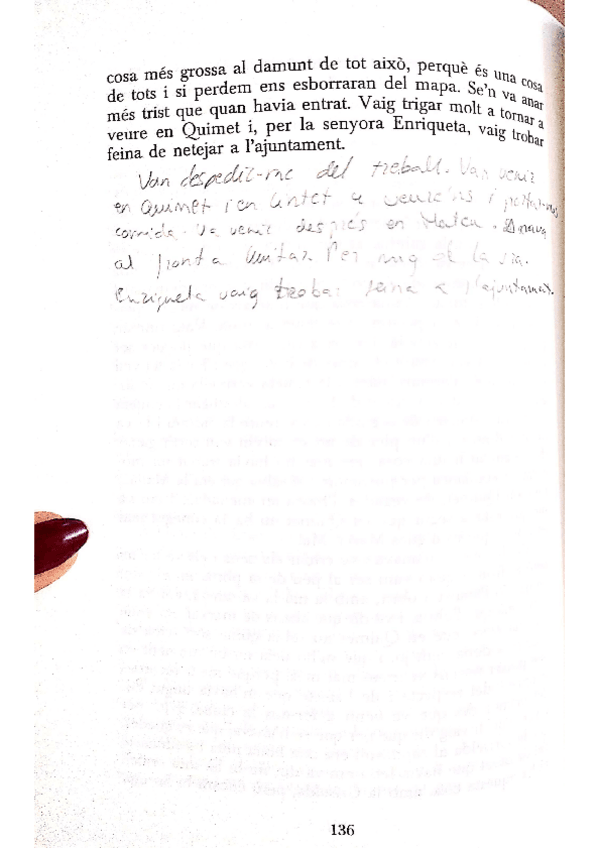 cosa més grossa al damunt de tot això, perquè és una cosa
de tots i si perdem ens esborraran del mapa. Se'n va anar
més trist que quan havia entrat. Vaig trigar molt a tornar a
veure en Quimet i, per la senyora Enriqueta, vaig trobar
feina de netejar a l'ajuntament.
Van despedir-me del treball. Van venir
en Quimet i en Cintet a veure'ns i
comida. Va venir després en Mateu.
al front a lluitar. Per mig de la sra.
Enriqueta vaig trobar feina a l'ajuntament.
136